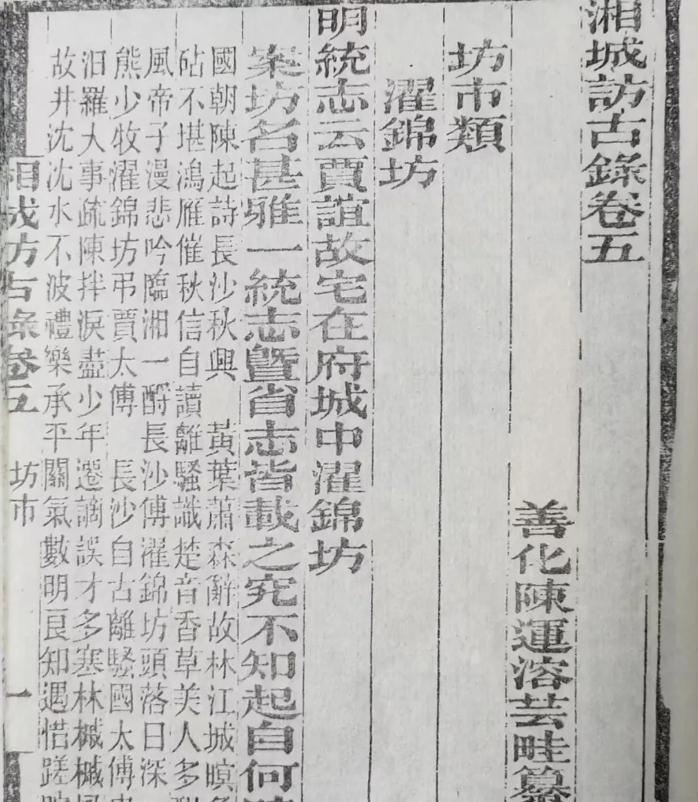 湘城訪古錄卷五
善化陳運溶芸畦纂
坊市類
濯錦坊
明統志云賈誼故宅在府城中濯錦坊
案坊名甚雅一統志暨省志皆載之究不知起自何
國朝陳起詩長沙秋興 黃葉蕭森辭故林江城暝
砧不堪鴻雁催秋信自讀離騷識楚音香草美人多
風帝子漫悲吟臨湘一酹長沙傅濯錦坊頭落日深
熊少牧濯錦坊弔賈太傅 長沙自古離騷國太傅
汨羅大事疏陳拌淚盡少年遷謫誤才多塞林槭槭風
故井沈沈水不波禮樂承平關氣數明良知遇惜蹉
湘城訪古錄卷五 坊市 一